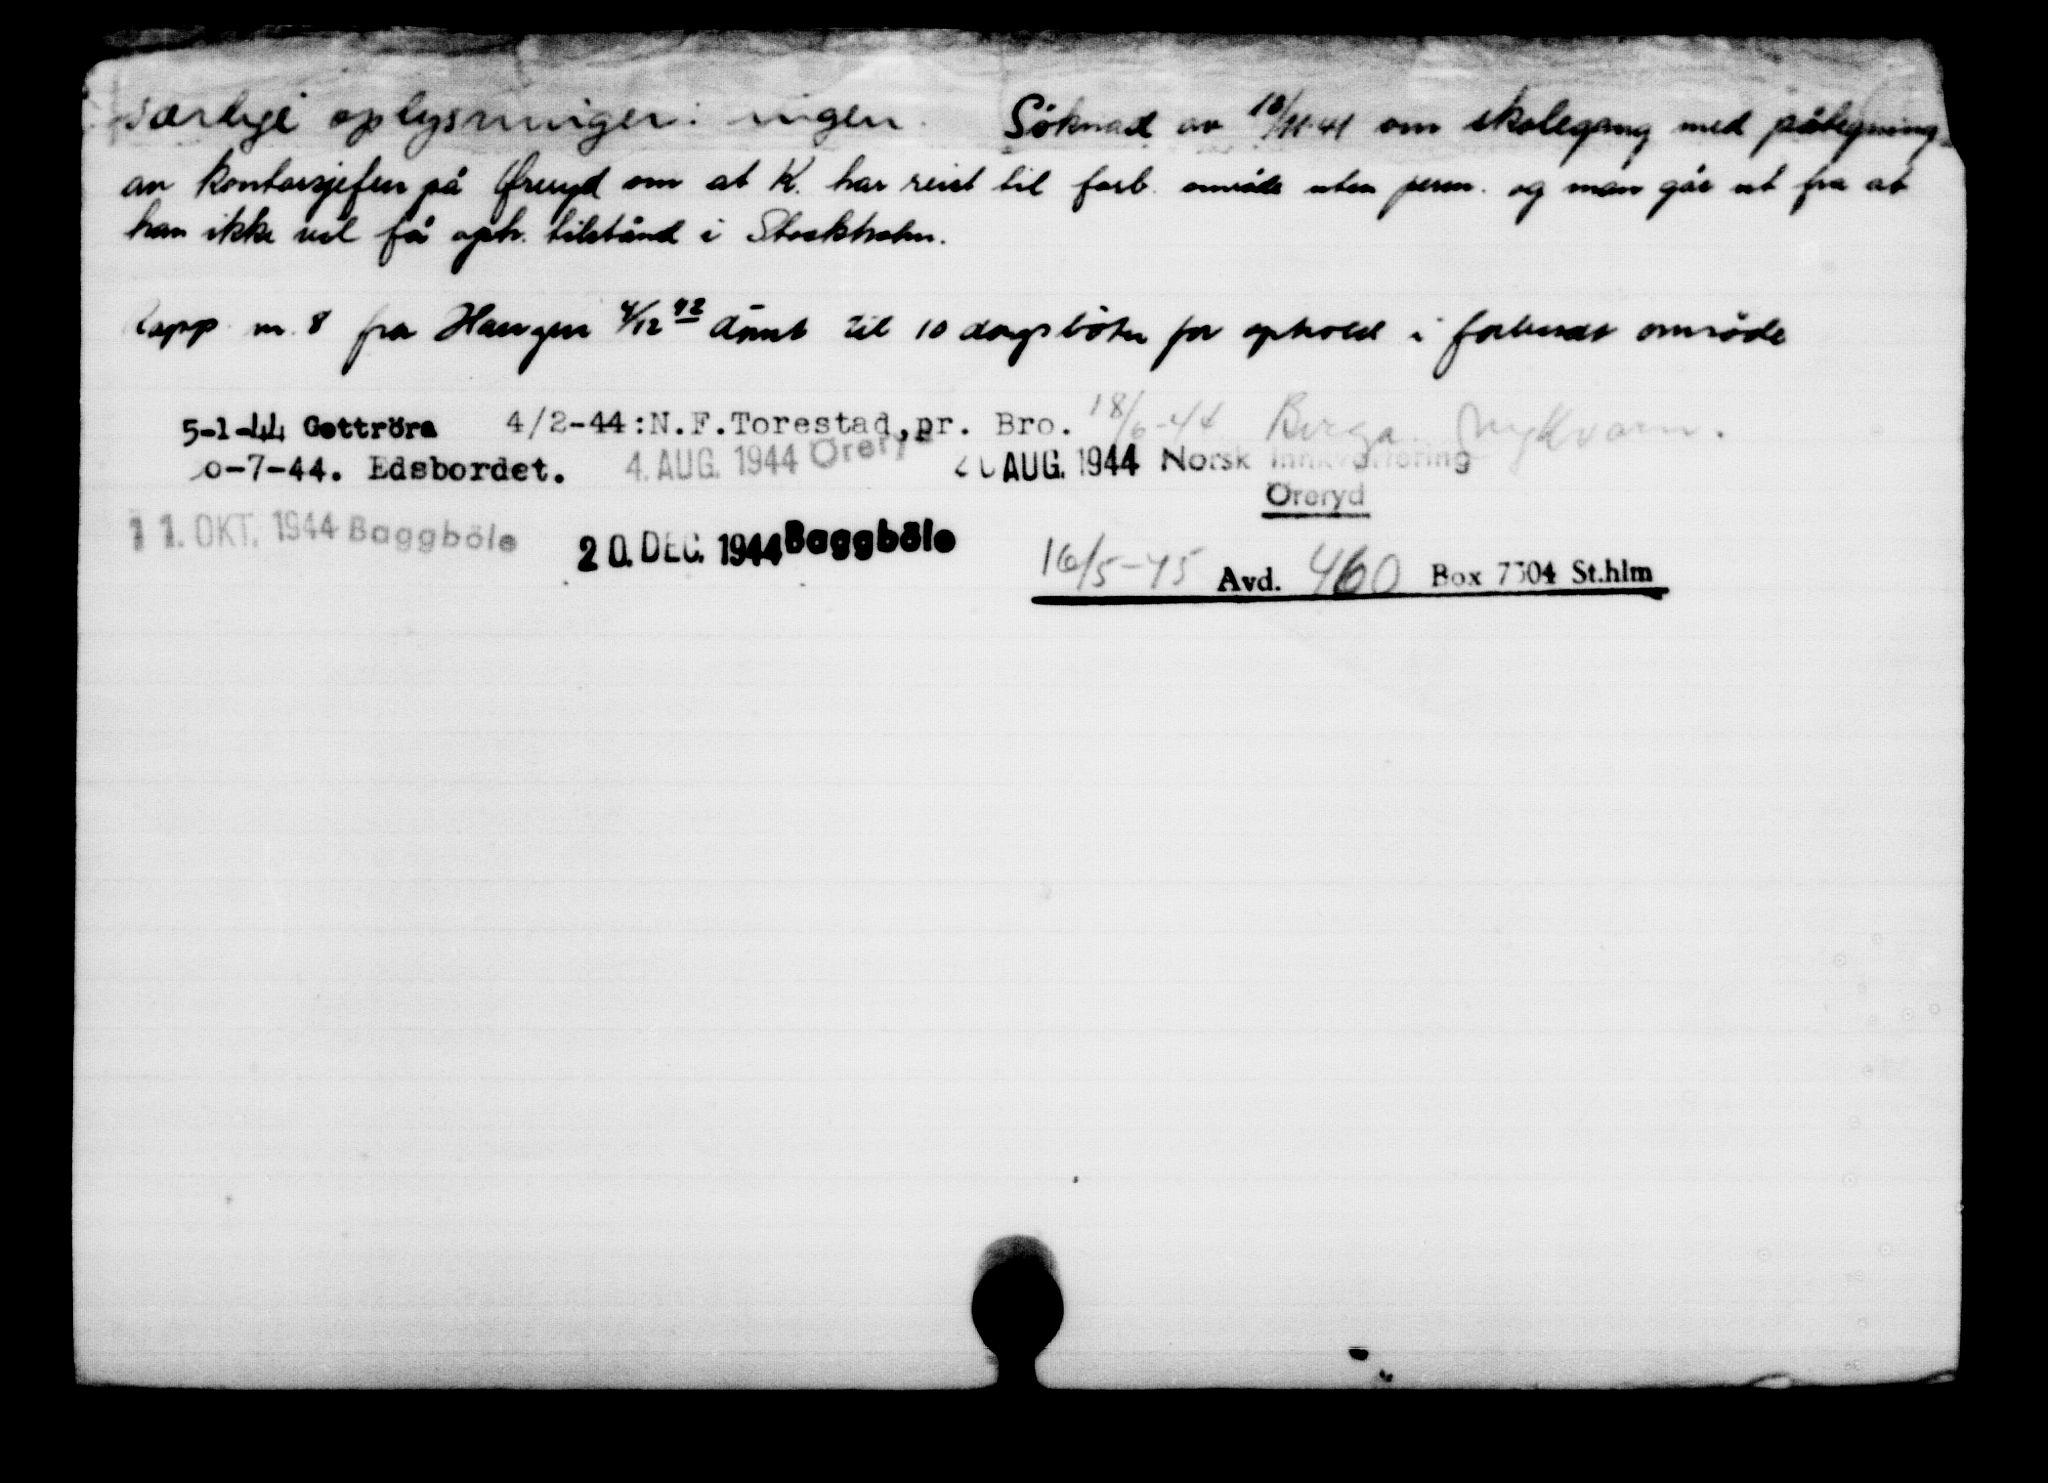 særlige oplysninger: ingen. Söknad av 18/11-41 om skolegang med påtegning
av kontorsjefen på Øreryd om at K. har reist til forb. område uten perm. og man går ut fra at
han ikke vil få oph. tilstånd i Stockholm.
Rapp. nr. 8 fra Haugen 4/12 42 dømt til 10 dagsböter for ophold i forbudt område
5-1-44 Gottröra 4/2-44:N.F.Torestad,pr. Bro. 18/6-44 Berga Nykvarn.
0-7-44. Edsbordet. 4. AUG. 1944 Öreryd AUG. 1944 Norsk Innkvartering
Öreryd
11. OKT. 1944 Baggböle 20. DEC. 1944 Baggböle
16/5-45 Avd. 460 Box 7304 St.hlm